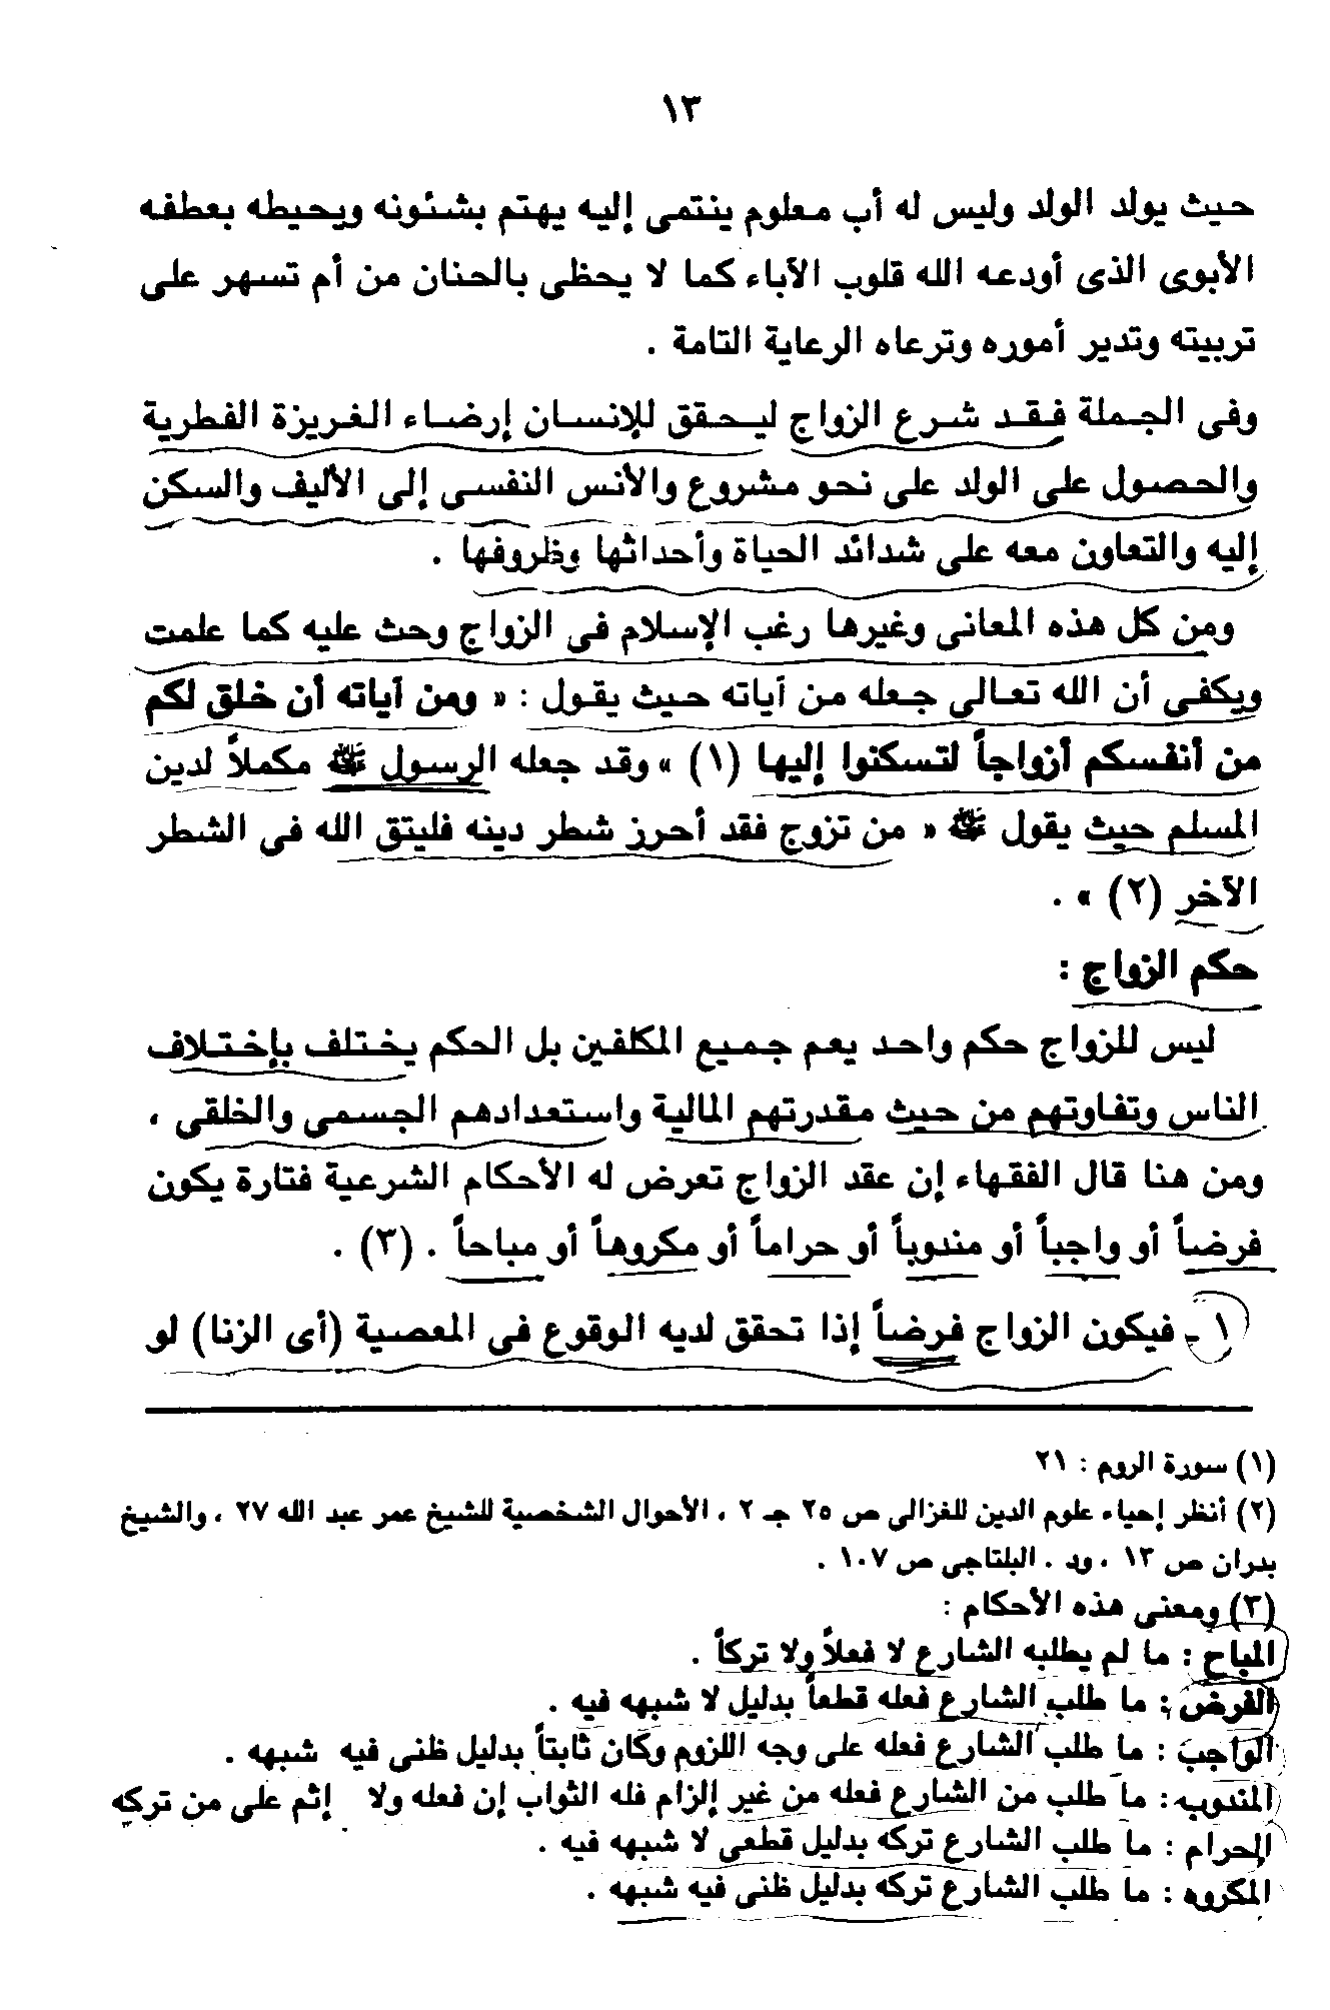 ١٣
حيث يولد الولد وليس له أب معلوم ينتمى إليه يهتم بشئونه ويحيطه بعطفه
الأبوى الذى أودعه الله قلوب الآباء كما لا يحظى بالحنان من أم تسهر على
تربيته وتدير أموره وترعاه الرعاية التامة .
وفى الجملة فقد شرع الزواج ليحقق للإنسان إرضاء الغريزة الفطرية
والحصول على الولد على نحو مشروع والأنس النفسى إلى الأليف والسكن
إليه والتعاون معه على شدائد الحياة وأحداثها وظروفها .
ومن كل هذه المعانى وغيرها رغب الإسلام فى الزواج وحث عليه كما علمت
ويكفى أن الله تعالى جعله من آياته حيث يقول : « ومن آياته أن خلق لكم
من أنفسكم أزواجاً لتسكنوا إليها (١) » وقد جعله الرسول ﷺ مكملاً لدين
المسلم حيث يقول ﷺ « من تزوج فقد أحرز شطر دينه فليتق الله فى الشطر
الآخر (٢) » .
حكم الزواج :
ليس للزواج حكم واحد يعم جميع المكلفين بل الحكم يختلف بإختلاف
الناس وتفاوتهم من حيث مقدرتهم المالية واستعدادهم الجسمى والخلقى ،
ومن هنا قال الفقهاء إن عقد الزواج تعرض له الأحكام الشرعية فتارة يكون
فرضاً أو واجباً أو مندوباً أو حراماً أو مكروهاً أو مباحاً . (٣) .
١ - فيكون الزواج فرضاً إذا تحقق لديه الوقوع فى المعصية (أى الزنا) لو
(١) سورة الروم : ٢١
(٢) أنظر إحياء علوم الدين للغزالى ص ٢٥ جـ ٢ ، الأحوال الشخصية للشيخ عمر عبد الله ٢٧ ، والشيخ
بدران ص ١٣ ، ود . البلتاجى ص ١٠٧ .
(٣) ومعنى هذه الأحكام :
المباح : ما لم يطلبه الشارع لا فعلاً ولا تركاً .
الفرض : ما طلب الشارع فعله قطعاً بدليل لا شبهه فيه .
الواجب : ما طلب الشارع فعله على وجه اللزوم وكان ثابتاً بدليل ظنى فيه شبهه .
المندوب : ما طلب من الشارع فعله من غير إلزام فله الثواب إن فعله ولا إثم على من تركه
الحرام : ما طلب الشارع تركه بدليل قطعى لا شبهه فيه .
المكروه : ما طلب الشارع تركه بدليل ظنى فيه شبهه .